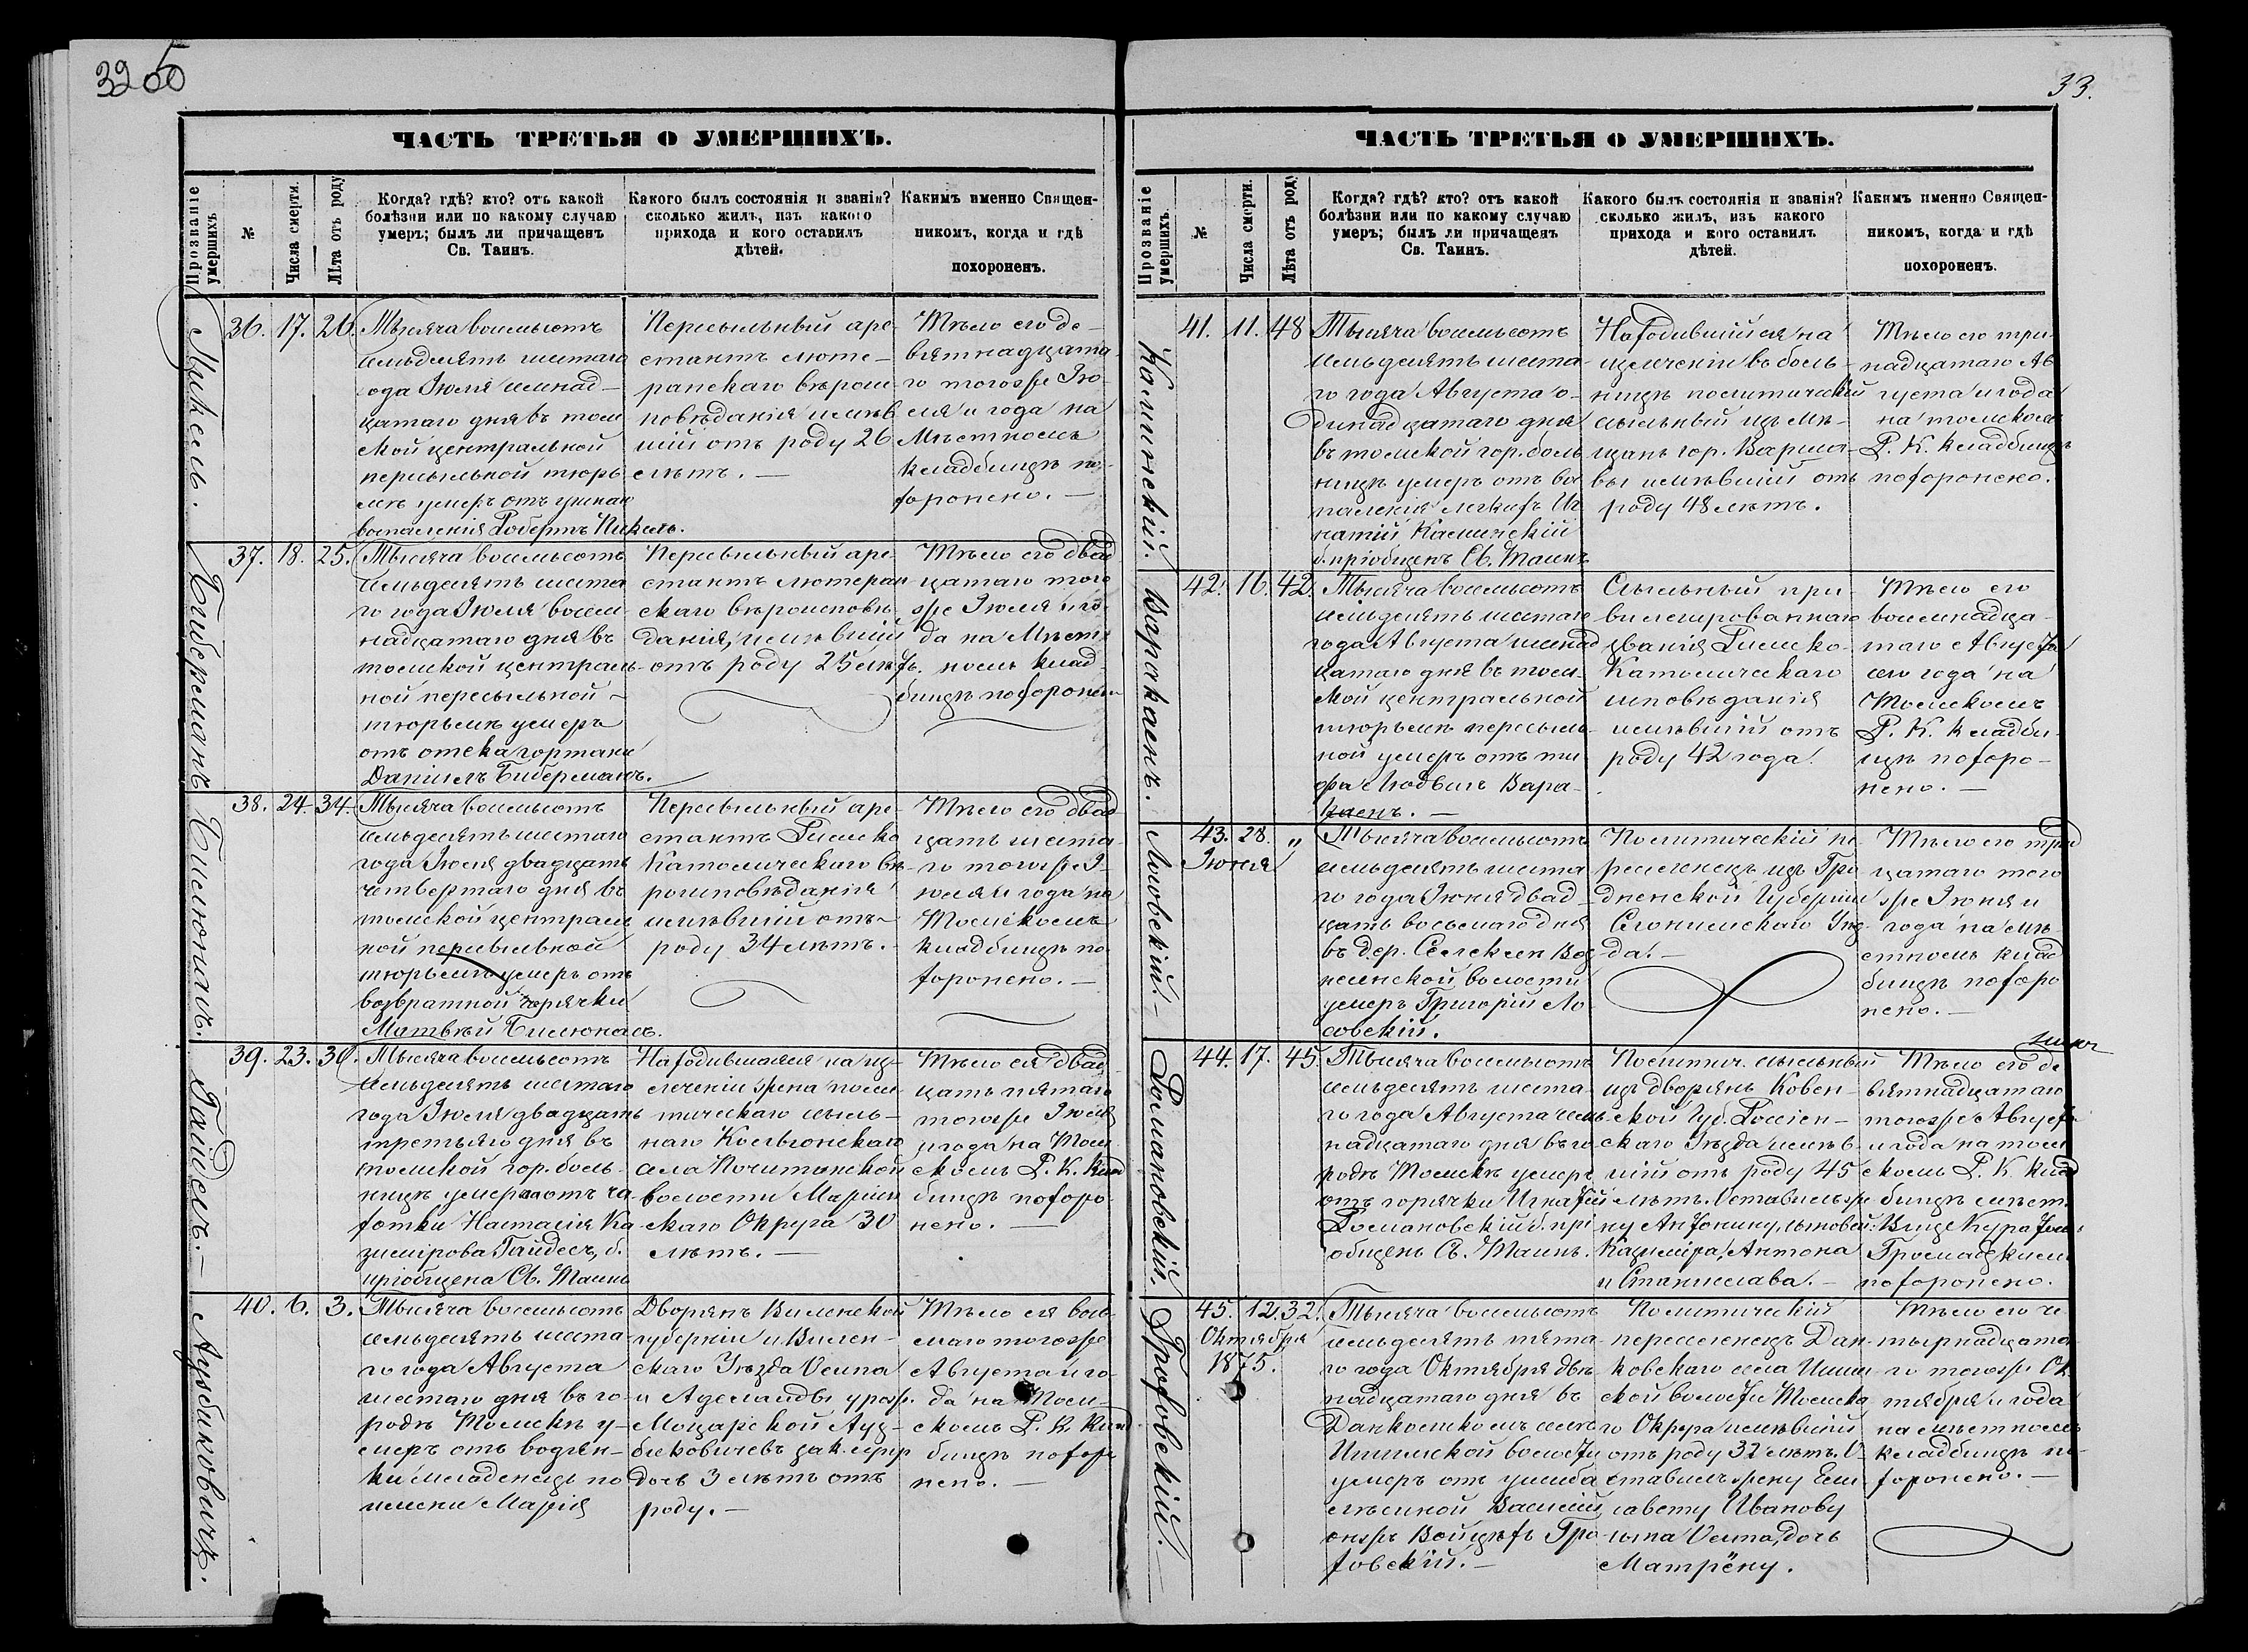 32
5
00
ЧАСТЬ ТРЕТЬЯ О УМЕРШИХЪ.
Прозваніе умершихъ.
№
Числа смерти.
Лѣта отъ роду
Когда? гдѣ? кто? отъ какой
болѣзни или по какому случаю
умеръ; былъ ли причащенъ
Св. Таинъ.
Какого былъ состоянія и званія?
сколько жилъ, изъ какого
прихода и кого оставилъ
дѣтей.
Какимъ именно Священ-
никомъ, когда и гдѣ
похороненъ.
Пикель.
36. 17. 26.
Тысяча восемьсотъ
семьдесятъ шестаго
года Іюля семнад-
цатаго дня въ том
ской центральной
пересыльной тюрь
мѣ умеръ отъ
воспаленія Робертъ Пикель.
Пересыльный аре-
стантъ люте-
ранскаго вѣроис-
повѣданія имѣв
шій отъ роду 26
лѣтъ. —
Тѣло его де-
вятнадцата-
го тогоже Ію-
ля и года на
Мѣстномъ
кладбищѣ по-
хоронено. —
Биберманъ
37. 18. 25.
Тысяча восемьсотъ
семьдесятъ шеста
го года Іюля восем-
надцатаго дня въ
томской централь-
ной пересыльной -
тюрьмѣ умеръ
отъ отека гортани
Даніилъ Биберманъ.
Пересыльный аре-
стантъ лютеран
скаго вѣроисповѣ-
данія, имѣвшій
отъ роду 25 лѣтъ.
Тѣло его двад
цатаго того
же Іюля и го-
да на Мѣст-
номъ клад-
бищѣ похоронено
Билюнасъ.
38. 24. 34.
Тысяча восемьсотъ
семьдесятъ шестаго
года Іюля двадцать
четвертаго дня въ
томской централь
ной пересыльной
тюрьмѣ умеръ отъ
возвратной горячки
Матвѣй Билюнасъ.
Пересыльный аре-
стантъ Римско
Католическаго вѣ-
роисповѣданія
имѣвшій отъ-
роду 34 лѣтъ. -
Тѣло его двад
цать шеста-
го тогоже І-
юля и года на
Томскомъ
кладбищѣ по
хоронено. —
Гайдесъ. —
39. 23. 30.
Тысяча восемьсотъ
семьдесятъ шестаго
года Іюля двадцать
третьяго дня въ
томской гор. боль-
ницѣ умерла отъ ча-
хотки Настасія Ка
зимірова Гайдесъ, б.
пріобщена Св. Таинъ
Находившаяся на из-
леченіи жена поли-
тическаго ссыль-
наго
села Почитанской
волости Маріин
скаго Округа 30
лѣтъ. —
Тѣло ея двад
цать пятаго
тогоже Іюля
и года на Том
скомъ Р. К. клад
бищѣ похоро-
нено. —
Аузбиковичъ.
40. 6. 3.
Тысяча восемьсотъ
семьдесятъ шеста
го года Августа
шестаго дня въ го-
родѣ Томскѣ у-
меръ отъ водян-
ки младенецъ по
имени Марія
Дворянъ Виленской
губерніи и Вилен-
скаго Уѣзда Осипа
и Аделаиды урож.
Моцарской Ауз-
биковичевъ зак. супр
дочь 3 лѣтъ отъ
роду. —
Тѣло ея вось
маго тогоже
Августа и го-
да на Том-
скомъ Р. К. клад
бищѣ похоро
нено. —
33.
ЧАСТЬ ТРЕТЬЯ О УМЕРШИХЪ.
Прозваніе умершихъ.
№
Числа смерти.
Лѣта отъ роду
Когда? гдѣ? кто? отъ какой
болѣзни или по какому случаю
умеръ; былъ ли причащенъ
Св. Таинъ.
Какого былъ состоянія и званія?
сколько жилъ, изъ какого
прихода и кого оставилъ
дѣтей.
Какимъ именно Священ-
никомъ, когда и гдѣ
похороненъ.
Калинскій.
41. 11. 48
Тысяча восемьсотъ
семьдесятъ шеста-
го года Августа о-
динадцатаго дня
въ томской гор. боль
ницѣ умеръ отъ во
паленія легкихъ Иг
натій Калинскій
б. пріобщенъ Св. Таинъ
Находившійся на
излеченіи въ боль-
ницѣ политическій
ссыльный изъ мѣ-
щанъ гор. Варша-
вы имѣвшій отъ
роду 48 лѣтъ.
Тѣло его три-
надцатаго Ав
густа и года
на томскомъ
Р. К. кладбищѣ
похоронено.
Варакаенъ.
42. 16. 42.
Тысяча восемьсотъ
семьдесятъ шестаго
года Августа шестнад
цатаго дня въ том-
ской центральной
тюрьмѣ пересыль-
ной умеръ отъ ти
фа Людвигъ Вара-
каенъ. —
Ссыльный при-
вилегированнаго
званія Римско-
Католическаго
исповѣданія
имѣвшій отъ
роду 42 года.
Тѣло его
восемнадца-
таго Августа
сего года на
Томскомъ
Р. К. кладби-
щѣ похоро-
нено. —
Лосовскій. —
43. 28. „
Іюня
Тысяча восемьсотъ
семьдесятъ шеста
го года Іюня двад-
цать восьмаго дня
въ дер. Воз
несенской волости
умеръ Григорій Ло-
совскій.
Политическій пе
реселенецъ изъ Гро
дненской Губерніи
Слонимскаго Уѣз-
да. —
Тѣло его трид
цатаго того
же Іюня и
года на мѣ-
стномъ клад
бищѣ похоро
нено. —
Романовскій.
44. 17. 45.
Тысяча восемьсотъ
семьдесятъ шеста-
го года Августа сем-
надцатаго дня въ го
родѣ Томскѣ умеръ
отъ горячки Игнатій
Романовскій б. прі
общенъ Св. Таинъ.
Политич. ссыльный
изъ дворянъ Ковен-
ской Губ. Россіен-
скаго Уѣзда имѣв-
шій отъ роду 45
лѣтъ. Оставилъ же
ну Антонину, сыновей:
Казиміра, Антона
и Станислава. —
Тѣло его де
вятнадцатаго
тогоже Августа
и года на том
скомъ Р. К. клад
бищѣ мѣст.
Вице Куратомъ
Громадскимъ
похоронено.
Гроховскій. —
45. 12. 32.
Октября
1875.
Тысяча восемьсотъ
семьдесятъ пята-
го года Октября двѣ
надцатаго дня въ
Данковскомъ селѣ
Ишимской волости
умеръ отъ ушиба
лѣсиной Василій
онъ же Войцѣхъ Гро-
ховскій. —
Политическій
переселенецъ Дан-
ковскаго села Ишим
ской волости Томска
го Округа имѣвшій
отъ роду 32 лѣтъ. О-
ставилъ жену Ели
савету Иванову
сына Осипа, дочь
Матрёну.
Тѣло его че
тырнадцата-
го тогоже Ок
тября и года
на мѣстномъ
кладбищѣ по-
хоронено. —